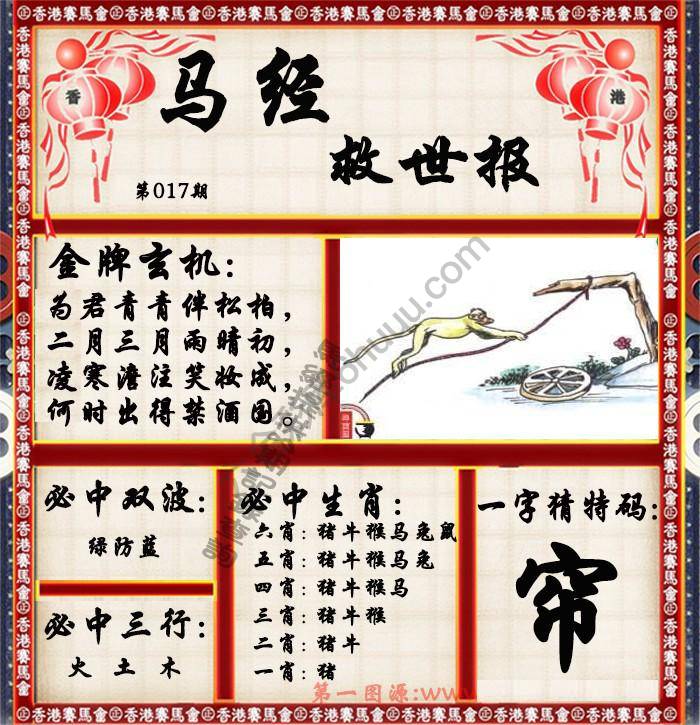 香港賽馬會
香 港
马经
救世报
第017期
金牌玄机：
为君青青伴松柏，
二月三月雨晴初，
凌寒澹注笑妆成，
何时出得禁酒国。
必中双波：
绿防蓝
必中三行：
火 土 木
必中生肖：
六肖：猪牛猴马兔鼠
五肖：猪牛猴马兔
四肖：猪牛猴马
三肖：猪牛猴
二肖：猪牛
一肖：猪
一字猜特码：
帘
第一图源:www